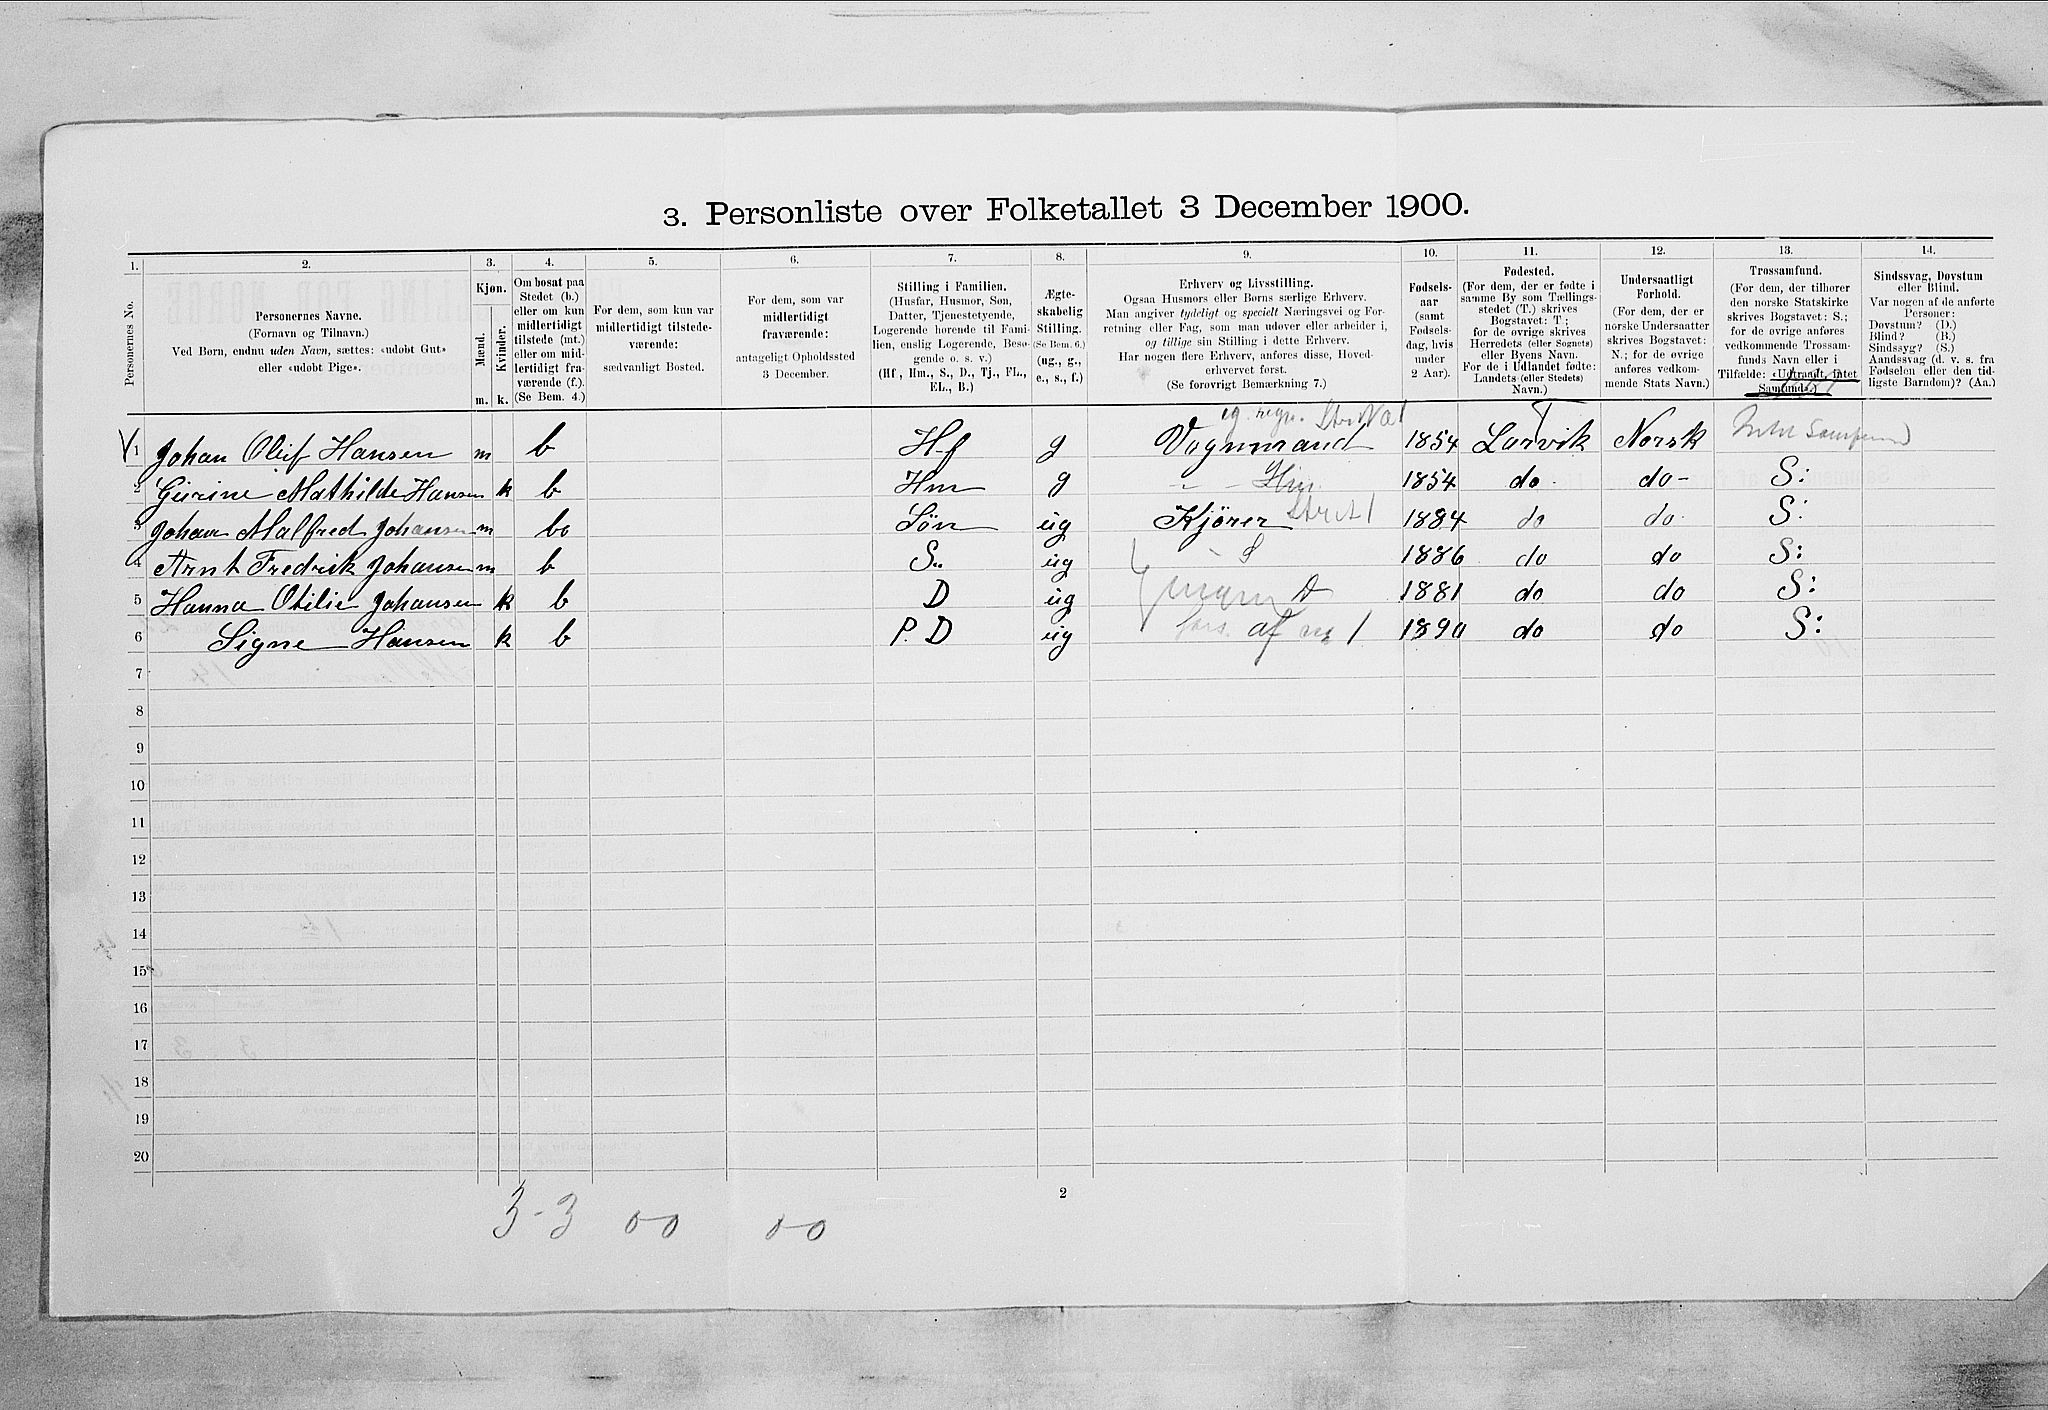 3. Personliste over Folketallet 3 December 1900.
1. 2. 3. 4. 5. 6. 7. 8. 9. 10. 11. 12. 13. 14.
Personernes No.
Personernes Navne.
(Fornavn og Tilnavn.)
Ved Børn, endnu uden Navn, sættes: «udøbt Gut»
eller «udøbt Pige».
Kjøn.
Mænd. Kvinder.
m. k.
Om bosat paa
Stedet (b.)
eller om kun
midlertidigt
tilstede (mt.)
eller om mid-
lertidigt fra-
værende (f.).
(Se Bem. 4.)
For dem, som kun var
midlertidigt tilstede-
værende:
sædvanligt Bosted.
For dem, som var
midlertidigt
fraværende:
antageligt Opholdssted
3 December.
Stilling i Familien.
(Husfar, Husmor, Søn,
Datter, Tjenestetyende,
Logerende hørende til Fami-
lien, enslig Logerende, Besø-
gende o. s. v.)
(Hf., Hm., S., D., Tj., FL.,
EL., B.)
Ægte-
skabelig
Stilling.
(Se Bem. 6.)
(ug., g.,
e., s., f.)
Erhverv og Livsstilling.
Ogsaa Husmors eller Børns særlige Erhverv.
Man angiver tydeligt og specielt Næringsvei og For-
retning eller Fag, som man udøver eller arbeider i,
og tillige sin Stilling i dette Erhverv.
Har nogen flere Erhverv, anføres disse, Hoved-
erhvervet først.
(Se forøvrigt Bemærkning 7.)
Fødsels-
aar
(samt
Fødsels-
dag, hvis
under
2 Aar).
Fødested.
(For dem, der er fødte i
samme By som Tællings-
stedet (T.) skrives
Bogstavet: T;
for de øvrige skrives
Herredets (eller Sognets)
eller Byens Navn.
For de i Udlandet fødte:
Landets (eller Stedets)
Navn.)
Undersaatligt
Forhold.
(For dem, der er
norske Undersaatter
skrives Bogstavet:
N.; for de øvrige
anføres vedkom-
mende Stats Navn.)
Trossamfund.
(For dem, der tilhører
den norske Statskirke
skrives Bogstavet: S.;
for de øvrige anføres
vedkommende Trossam-
funds Navn eller i
Tilfælde: «Udtraadt, intet
Samfund».)
Sindssvag, Døvstum
eller Blind.
Var nogen af de anførte
Personer:
Døvstum? (D.)
Blind? (B.)
Sindssyg? (S.)
Aandssvag (d. v. s. fra
Fødselen eller den tid-
ligste Barndom)? (Aa.)
T
1 Johan Olif Hansen m b Hf g Vognmand 1854 Larvik Norsk
2 Gurine Mathilde Hansen k b Hm g - - Hm. 1854 do do S:
3 Johan Malfred Johansen m bo Søn ug Kjører 1884 do do S:
4 Arnt Fredrik Johansen m b S.. ug - S 1886 do do S:
5 Hanna Otilie Johansen k b D ug D 1881 do do S:
6 Signe Hansen k b P. D ug fors. af 1 1890 do do S:
7
8
9
10
11
12
13
14
15
16
17
18
19
20
2
3-3 0-0 0-0